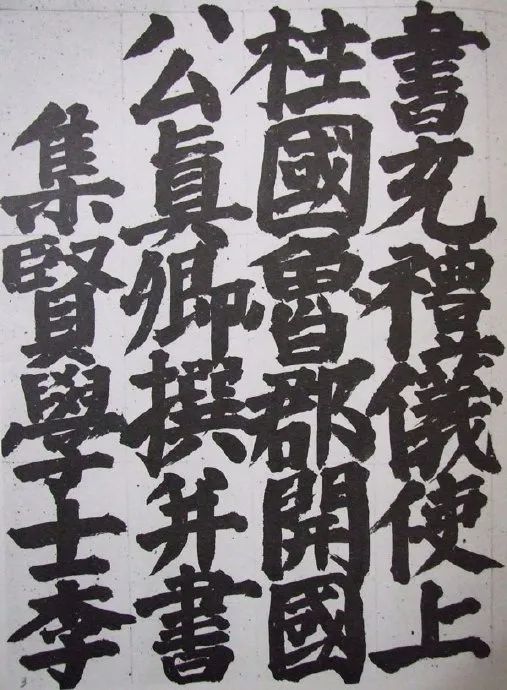 書充禮儀使上
柱國魯郡開國
公真卿撰并書
集賢學士李